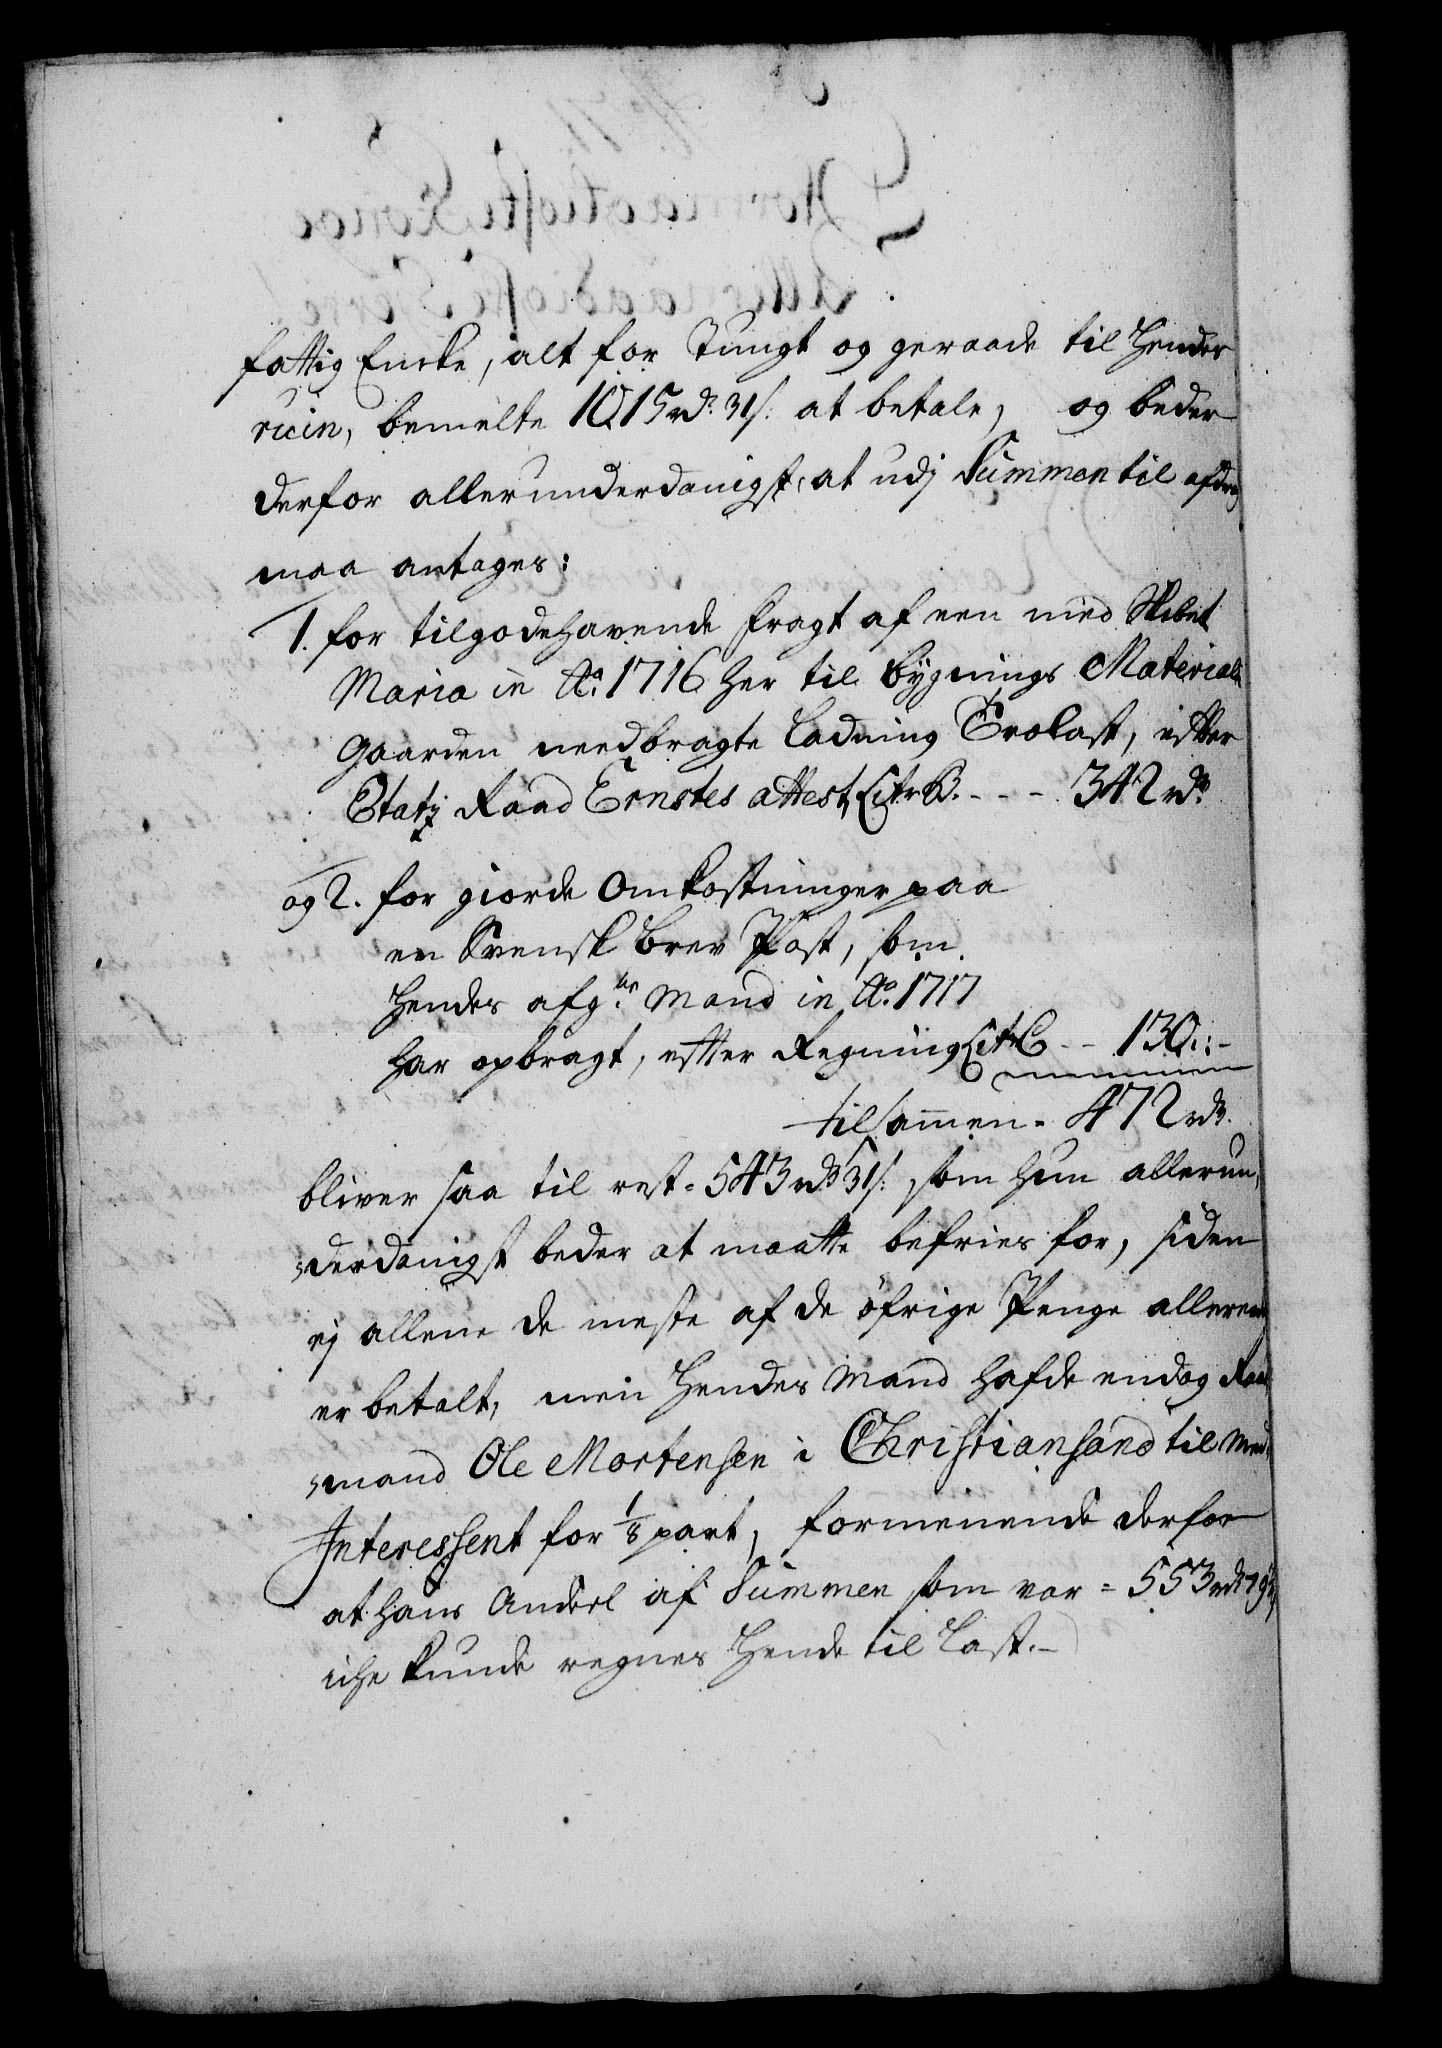 fattig Encke, alt for tungt og geraade til Hendes
ruin, bemelte 1015 rdr 31 s: at betale, og beder
derfor allerunderdanigst, at udj Summen til afdrag
maa antages:
1. for tilgodehavende fragt af een med Skibet
Maria in Ao. 1716 her til bygnings Material
Gaarden needbragte Ladning Trælast, efter
Etatz Raad Ernstes attest, Litr B. - - - 342 rdr
og 2. for giorde Omkostninger paa
en Svensk brev Post, som
Hendes afg. Mand in Ao. 1717
har opbragt, efter Regning Litr C - - 130 : -
tilsammen - 472 rdr.
bliver saa til rest - 543 rdr 31 s:, som hun allerun-
derdanigst beder at maatte befries for, siden
ej allene de meste af de öfrige Penge allereede
er betalt, men Hendes Mand hafde endog Raad
mand Ole Mortensen i Christiansand til Med
Interessent for 1/8 part, formenende derfor
at hans Andeel af Summen som var = 553 rdr
iche kunde regnes Hende til Last.-